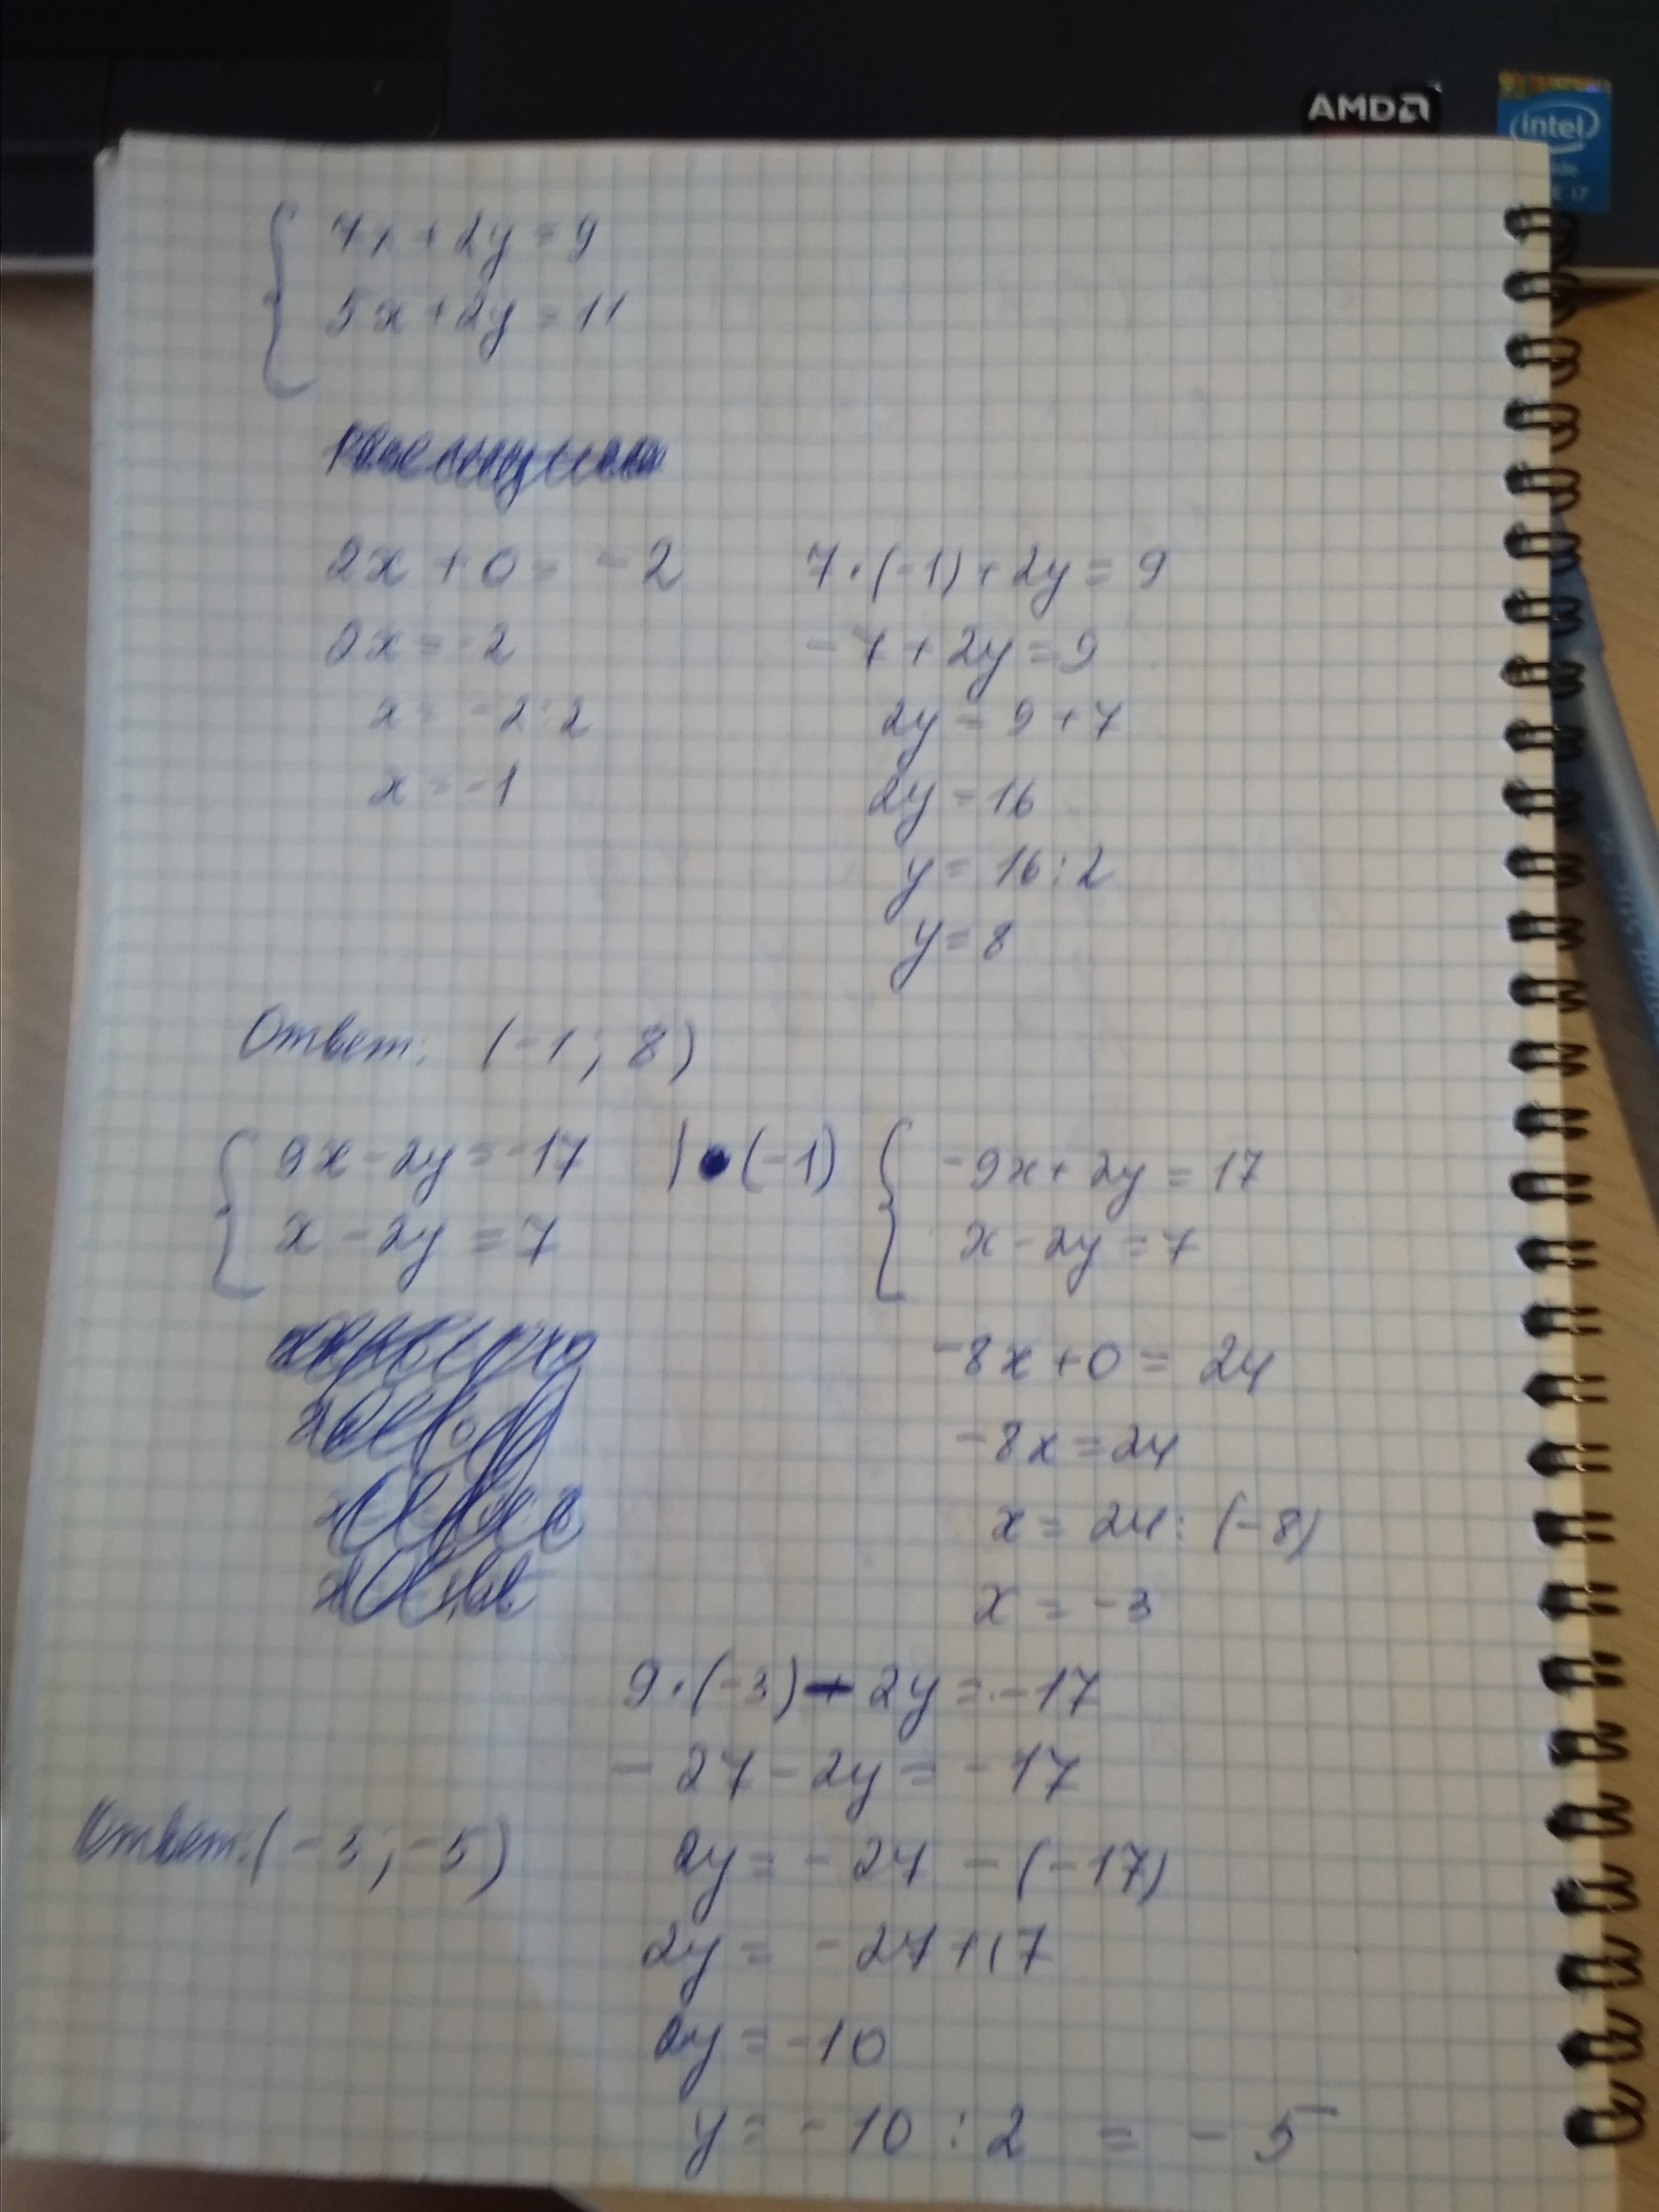 AMD
intel
7x + 2y = 9
5x + 2y = 11
2x + 0 = -2
2x = -2
x = -2:2
x = -1
7·(-1) + 2y = 9
-7 + 2y = 9
2y = 9 + 7
2y = 16
y = 16:2
y = 8
Ответ: (-1; 8)
9x - 2y = -17 | · (-1)
x - 2y = 7
-9x + 2y = 17
x - 2y = 7
-8x + 0 = 24
-8x = 24
x = 24:(-8)
x = -3
9·(-3) - 2y = -17
-27 - 2y = -17
2y = -27 - (-17)
2y = -27 + 17
2y = -10
y = -10 : 2 = -5
Ответ: (-3; -5)